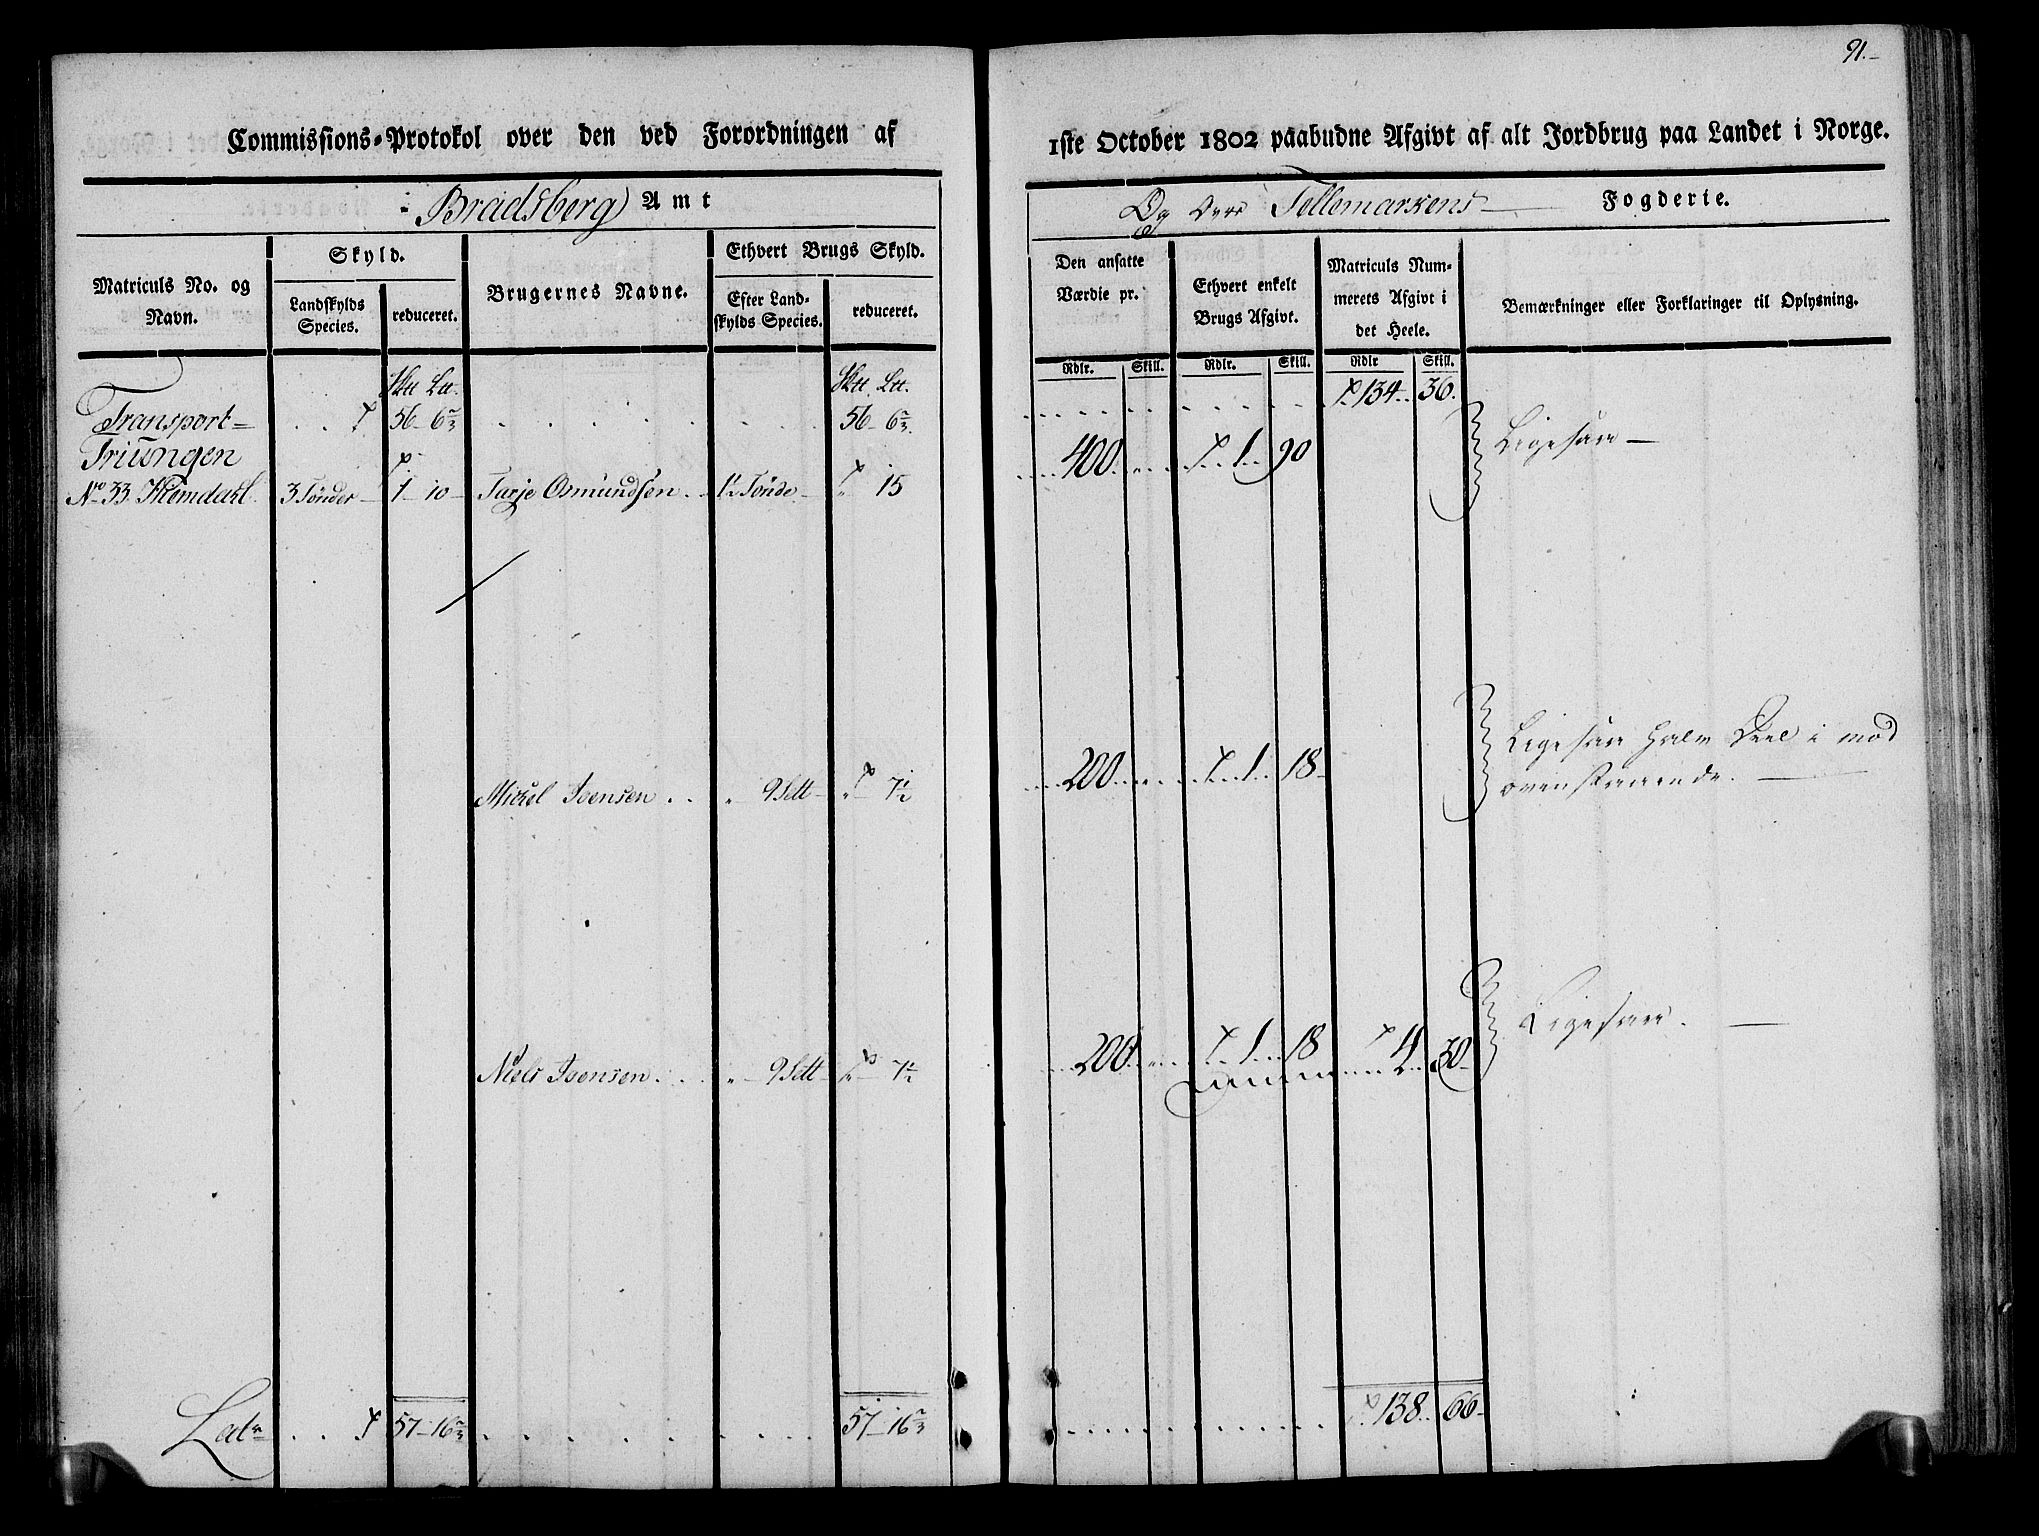 91.-
Commissions-Protokol over den ved Forordningen af
1ste October 1802 paabudne Afgivt af alt Jordbrug paa Landet i Norge.
Bradsberg Amt
Og Over Tellemarkens Fogderie.
Matriculs No. og Navn.
Skyld.
Landskylds Species.
reduceret.
Brugernes Navne.
Ethvert Brugs Skyld.
Efter Landskylds Species.
reduceret.
Den ansatte Værdie pr.
Ethvert enkelt Brugs Afgivt.
Matriculs Nummerets Afgivt i det Heele.
Bemærkninger eller Forklaringer til Oplysning.
Rdlr. Skill. Rdlr. Skill. Rdlr Skill.
Transport 56 - 6⅔ 56 - 6⅔ 134 36.
Triungen
No 33 Kiemdahl. 3 Tønder 1 - 10 Tarje Osmundsen 1½ Tønde 15 400 1 90 Ligesaa
Mickel Ivensen 9 Sett 7½ 200 1 18 Ligesaa halv Deel i mod
ovenstaaende.
Niels Ivensen 9 Sett 7½ 200 1 18 4 30 Ligesaa.
Lat. 57 - 16⅔ 57 - 16⅔ 138 66